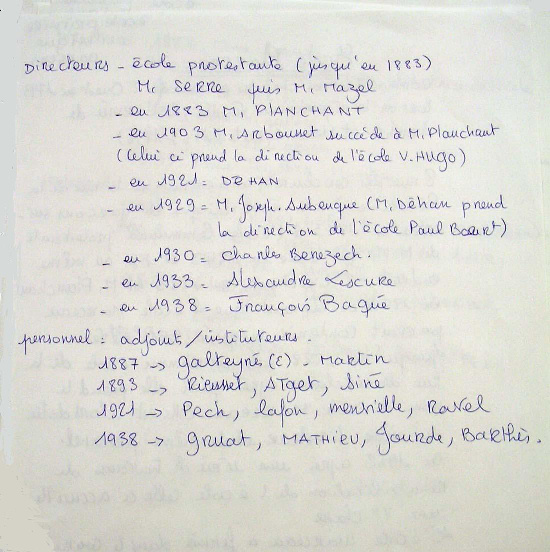 Directeurs - école protestante (jusqu'en 1883)
M. SERRE puis M. Mazel
- en 1883 M. PLANCHANT
- en 1903 M. Arbousset succède à M. Planchant
(celui ci prend la direction de l'école V. HUGO)
- en 1921 = DEHAN
- en 1929 = M. Joseph. Aubenque (M. Déhan prend
la direction de l'école Paul Baert)
- en 1930 = Charles Benezech.
- en 1933 = Alexandre Lescure
- en 1938 = François Bagué
personnel : adjoints/instituteurs.
1887 → galteyriés (E) - Martin
1893 → Rieusset, Alget, Siné
1921 → Pech, lafon, Ravel
1938 → gruat, MATHIEU, Jourde, Barthès.